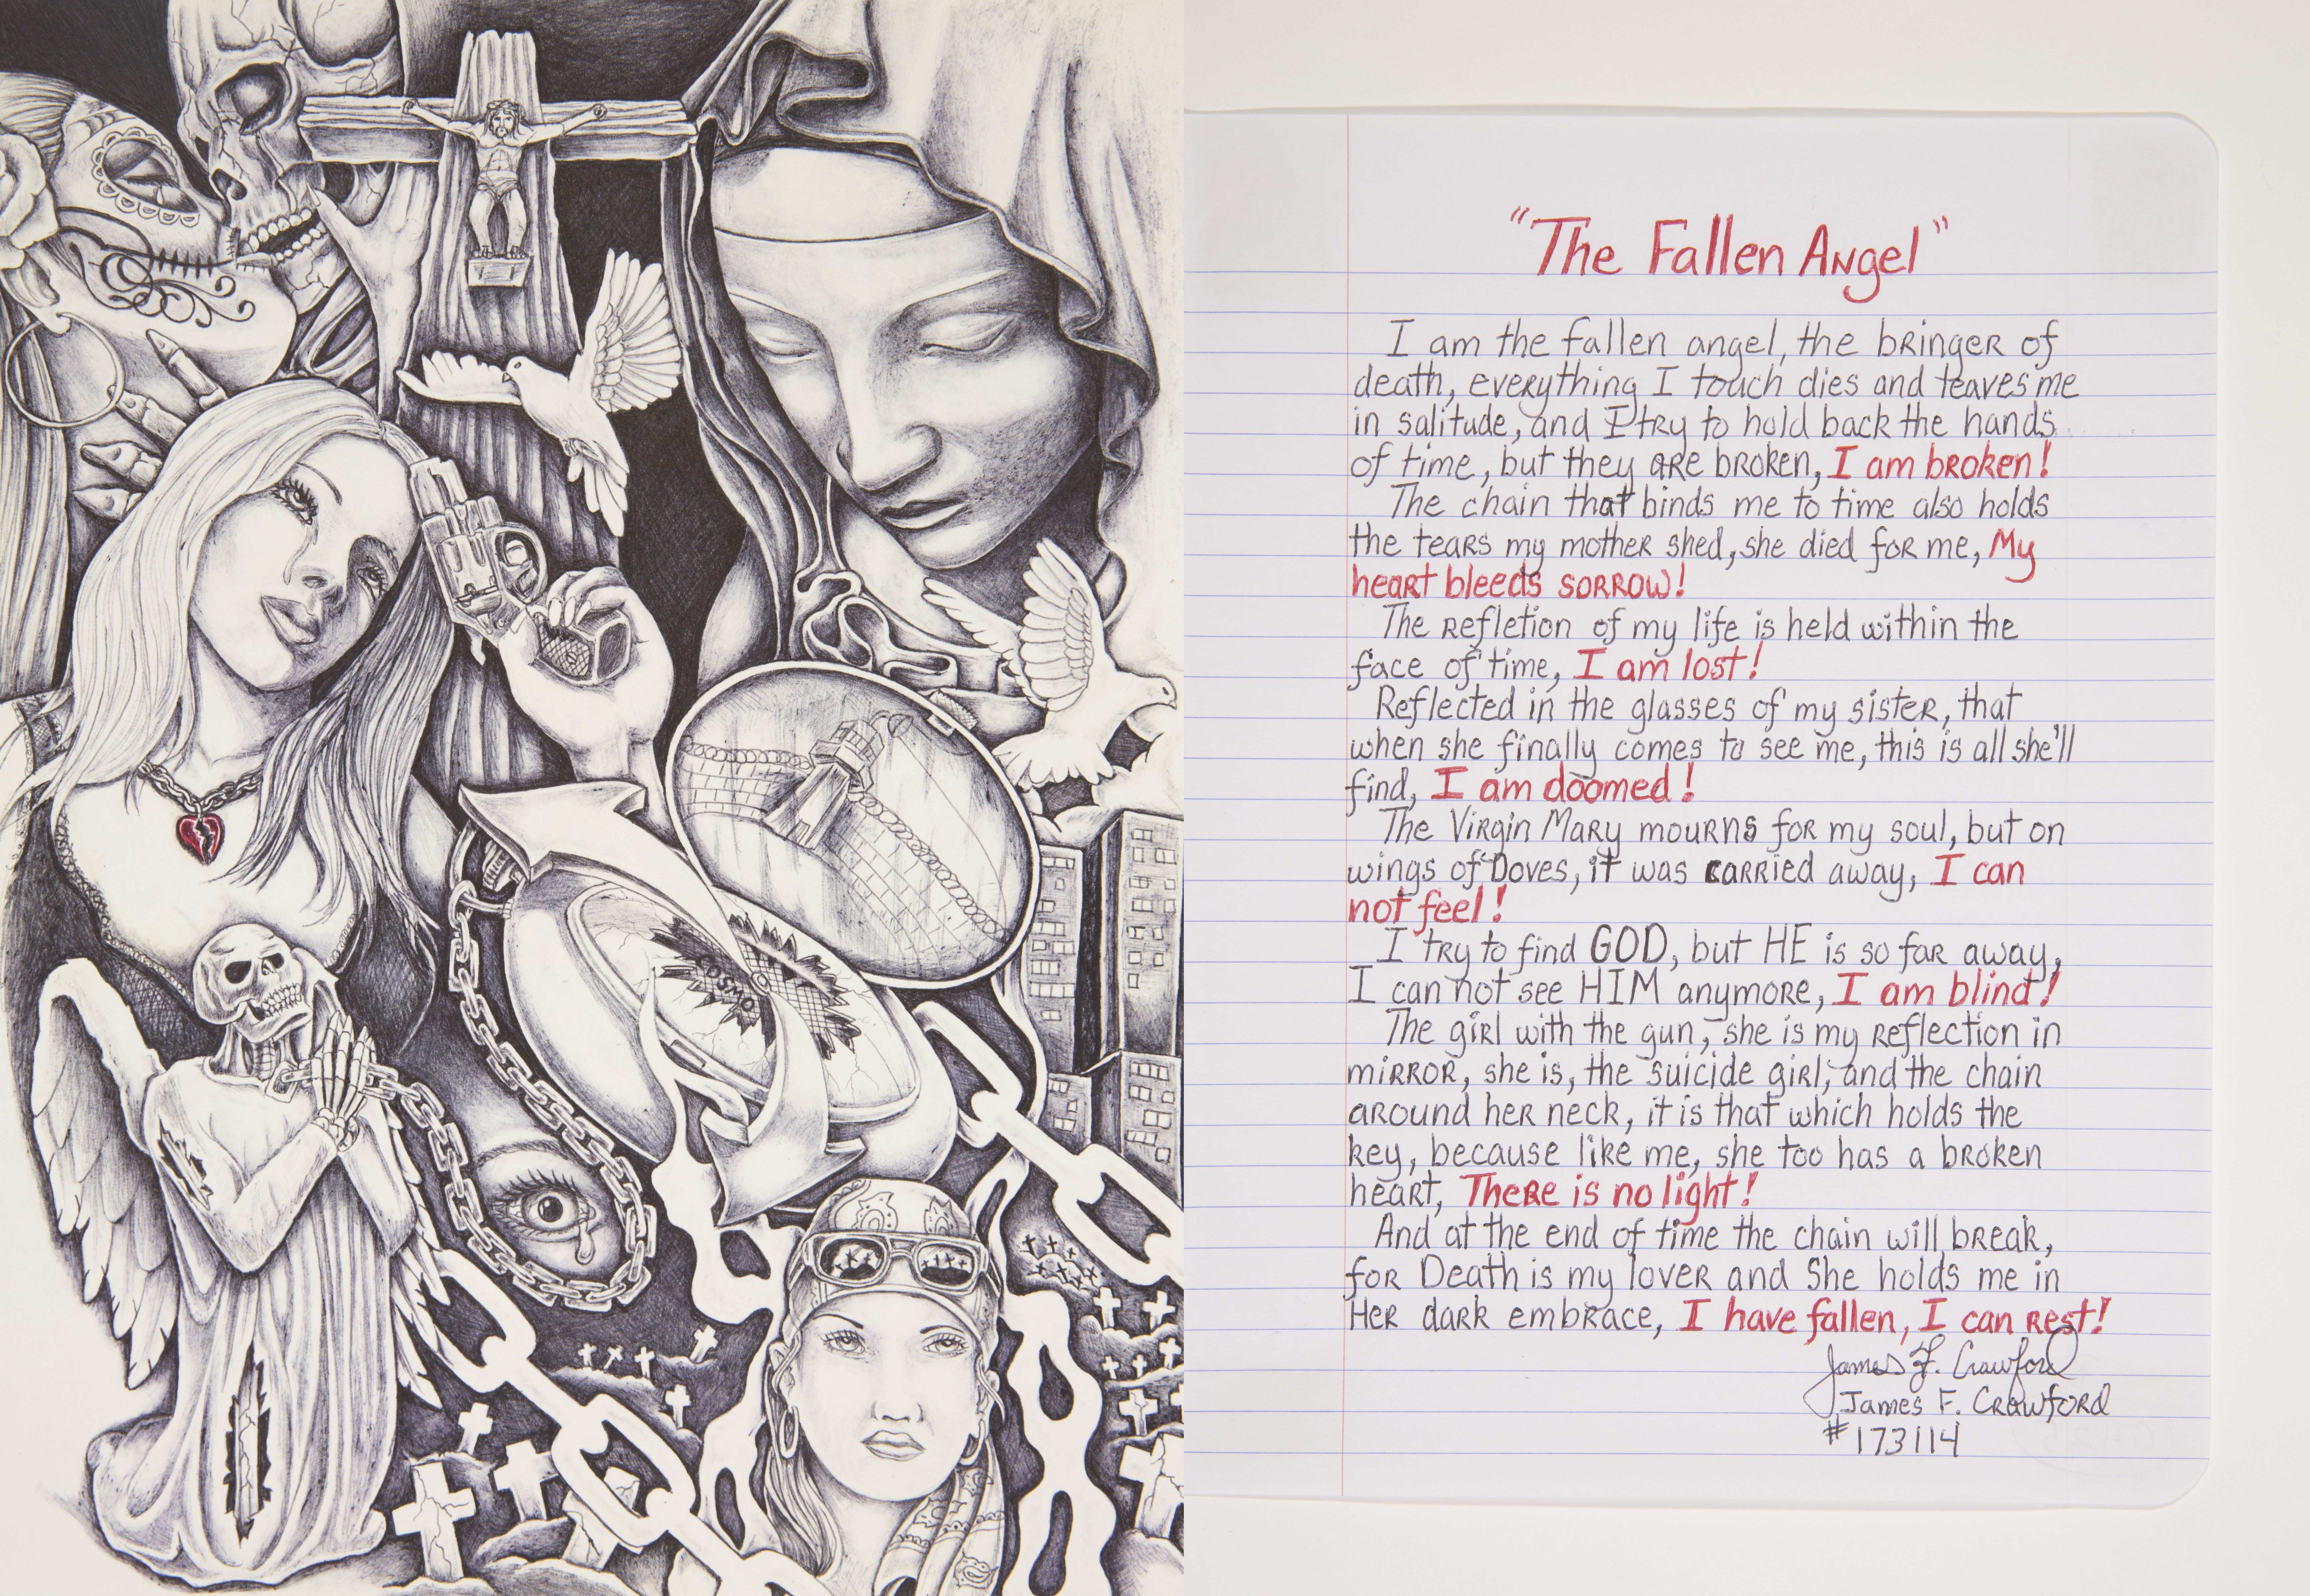 COSMO
"The Fallen Angel"
I am the fallen angel, the bringer of
death, everything I touch dies and leaves me
in salitude, and I try to hold back the hands
of time, but they are broken, I am broken!
The chain that binds me to time also holds
the tears my mother shed, she died for me, My
heart bleeds sorrow!
The refletion of my life is held within the
face of time, I am lost!
Reflected in the glasses of my sister, that
when she finally comes to see me, this is all she'll
find, I am doomed!
The Virgin Mary mourns for my soul, but on
wings of Doves, it was carried away, I can
not feel!
I try to find GOD, but HE is so far away,
I can not see HIM anymore, I am blind!
The girl with the gun, she is my reflection in
mirror, she is, the suicide girl, and the chain
around her neck, it is that which holds the
key, because like me, she too has a broken
heart, There is no light!
And at the end of time the chain will break,
for Death is my lover and She holds me in
Her dark embrace, I have fallen, I can rest!
James F. Crawford
James F. Crawford
#173114